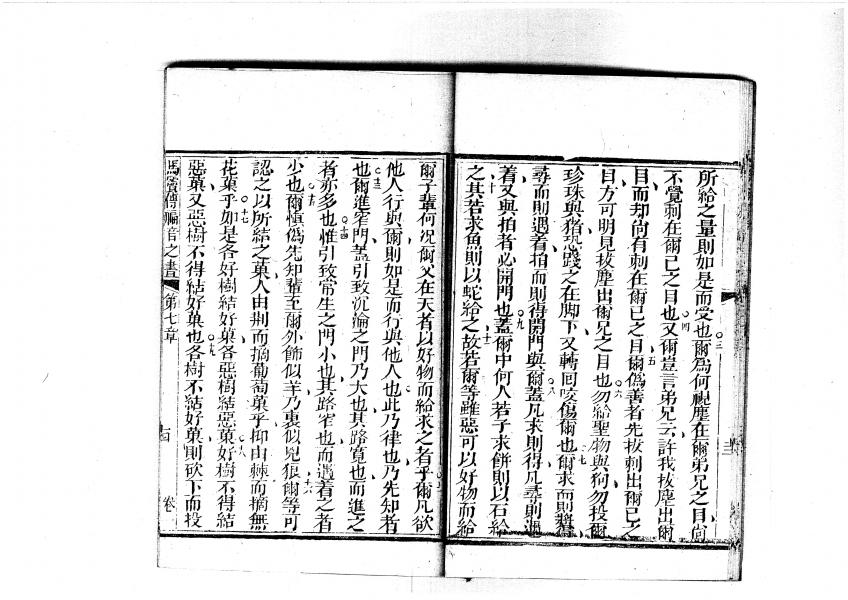 所給之量則如是而受也爾爲何視塵在爾弟兄之目尙
不覺刺在爾己之目也又爾豈言弟兄云許我拔塵出爾
目而却尙有刺在爾己之目爾僞善者先拔刺出爾己之
目方可明見拔塵出爾兄之目也勿給聖物與狗勿投爾
珍珠與猪恐踐之在脚下又轉囘咬傷爾也爾求而則將
尋而則遇着拍而則得開門與爾蓋凡求則得凡尋則遇
着又與拍者必開門也蓋爾中何人若子求餅則以石給
之其若求魚則以蛇給之故若爾等雖惡可以好物而給
爾子輩何況爾父在天者以好物而給求之者乎爾凡欲
他人行與爾則如是而行與他人也此乃律也乃先知者
也爾進窄門蓋引致沉淪之門乃大也其路寬也而進之
者亦多也惟引致常生之門小也其路窄也而遇着之者
少也爾愼僞先知輩至爾外飾似羊乃裏似兇狼爾等可
認之以所結之菓人由荆而摘葡萄菓乎抑由棘而摘無
花菓乎如是各好樹結好菓各惡樹結惡菓好樹不得結
惡菓又惡樹不得結好菓也各樹不結好菓則砍下而投
馬竇傳福音之書 第七章 卷